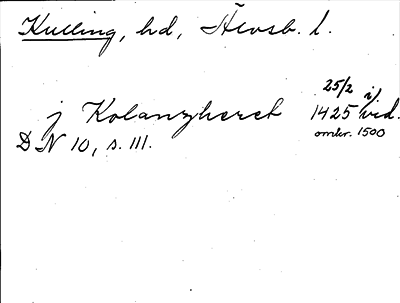 Kulling, hd, Älvsb. l.
25/2
j Kolanzheret 1425 i vid.
omkr. 1500
DN 10, s. 111.